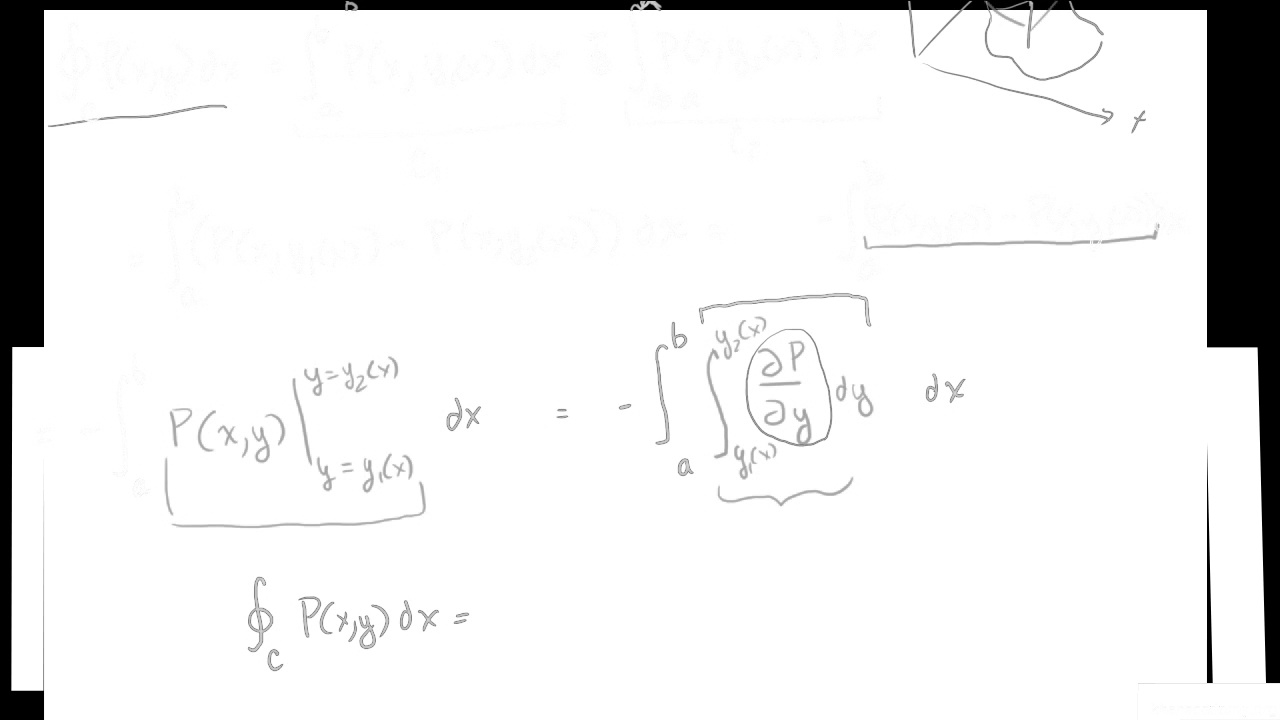 ∮_C P(x,y) dx = ∫_a^b P(x, y_1(x)) dx ∫ P(x, y_2(x)) dx
C_1 C_2
x
= ∫_a^b (P(x, y_1(x)) - P(x, y_2(x))) dx = - ∫_a^b
= - ∫_a^b P(x,y) |_{y = y_1(x)}^{y = y_2(x)} dx = - ∫_a^b ∫_{y_1(x)}^{y_2(x)} ∂P/∂y dy dx
∮_C P(x,y) dx =